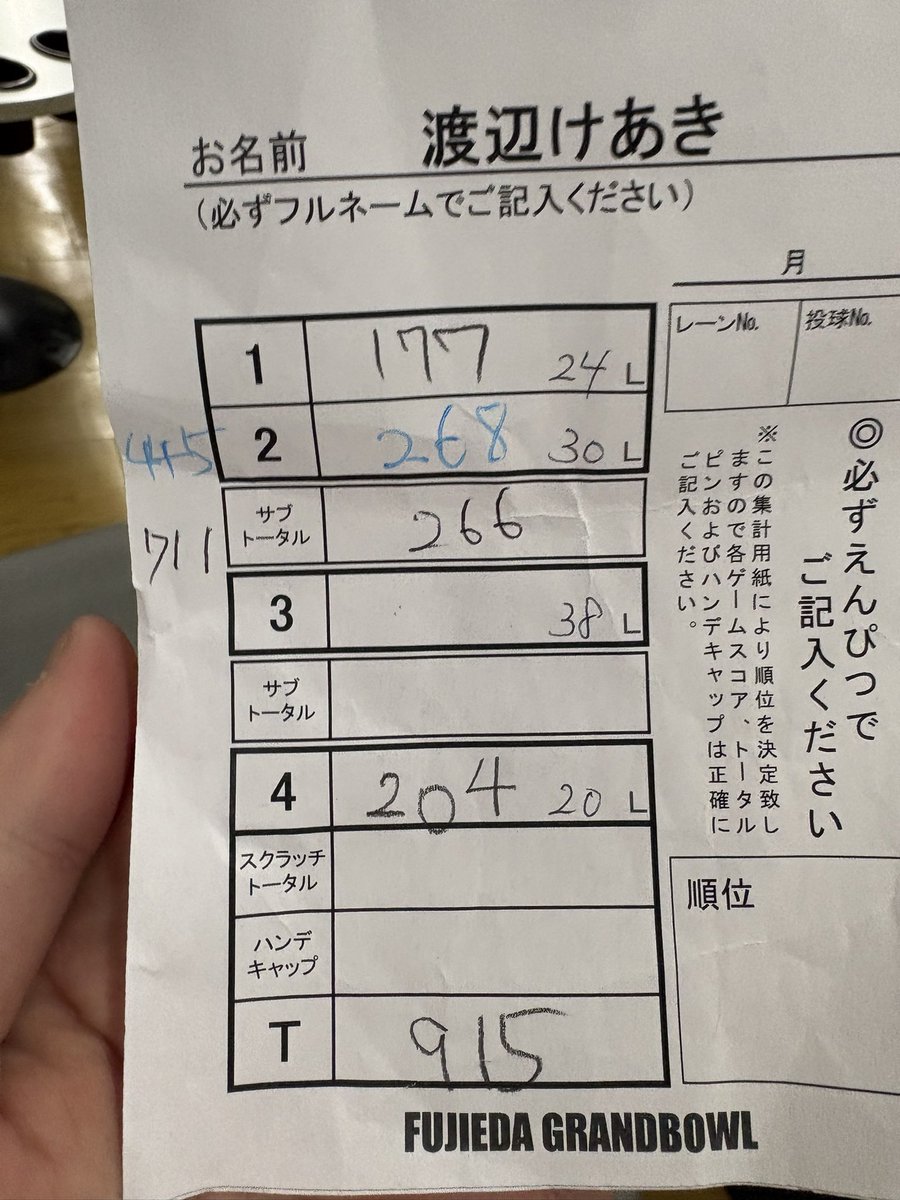 お名前 渡辺けあき
（必ずフルネームでご記入ください）
月
1 177 24 L
445 2 268 30 L
711 サブトータル 266
3 38 L
サブトータル
4 204 20 L
スクラッチトータル
ハンデキャップ
T 915
レーンNo. 投球No.
◎必ずえんぴつで
ご記入ください
※この集計用紙により順位を決定致し
ますので各ゲームスコア、トータル
ピンおよびハンデキャップは正確に
ご記入ください。
順位
FUJIEDA GRANDBOWL